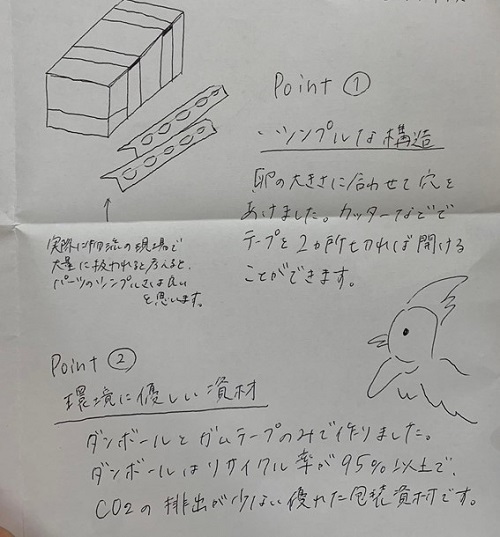 Point ①
・シンプルな構造
卵の大きさに合わせて穴を
あけました。カッターなどで
テープを2カ所切れば開ける
ことができます。
実際に物流の現場で
大量に扱われると考えると、
パーツのシンプルさは良い
と思います。
Point ②
環境に優しい資材
ダンボールとガムテープのみで作りました。
ダンボールはリサイクル率が95%以上で、
CO2の排出が少ない優れた包装資材です。